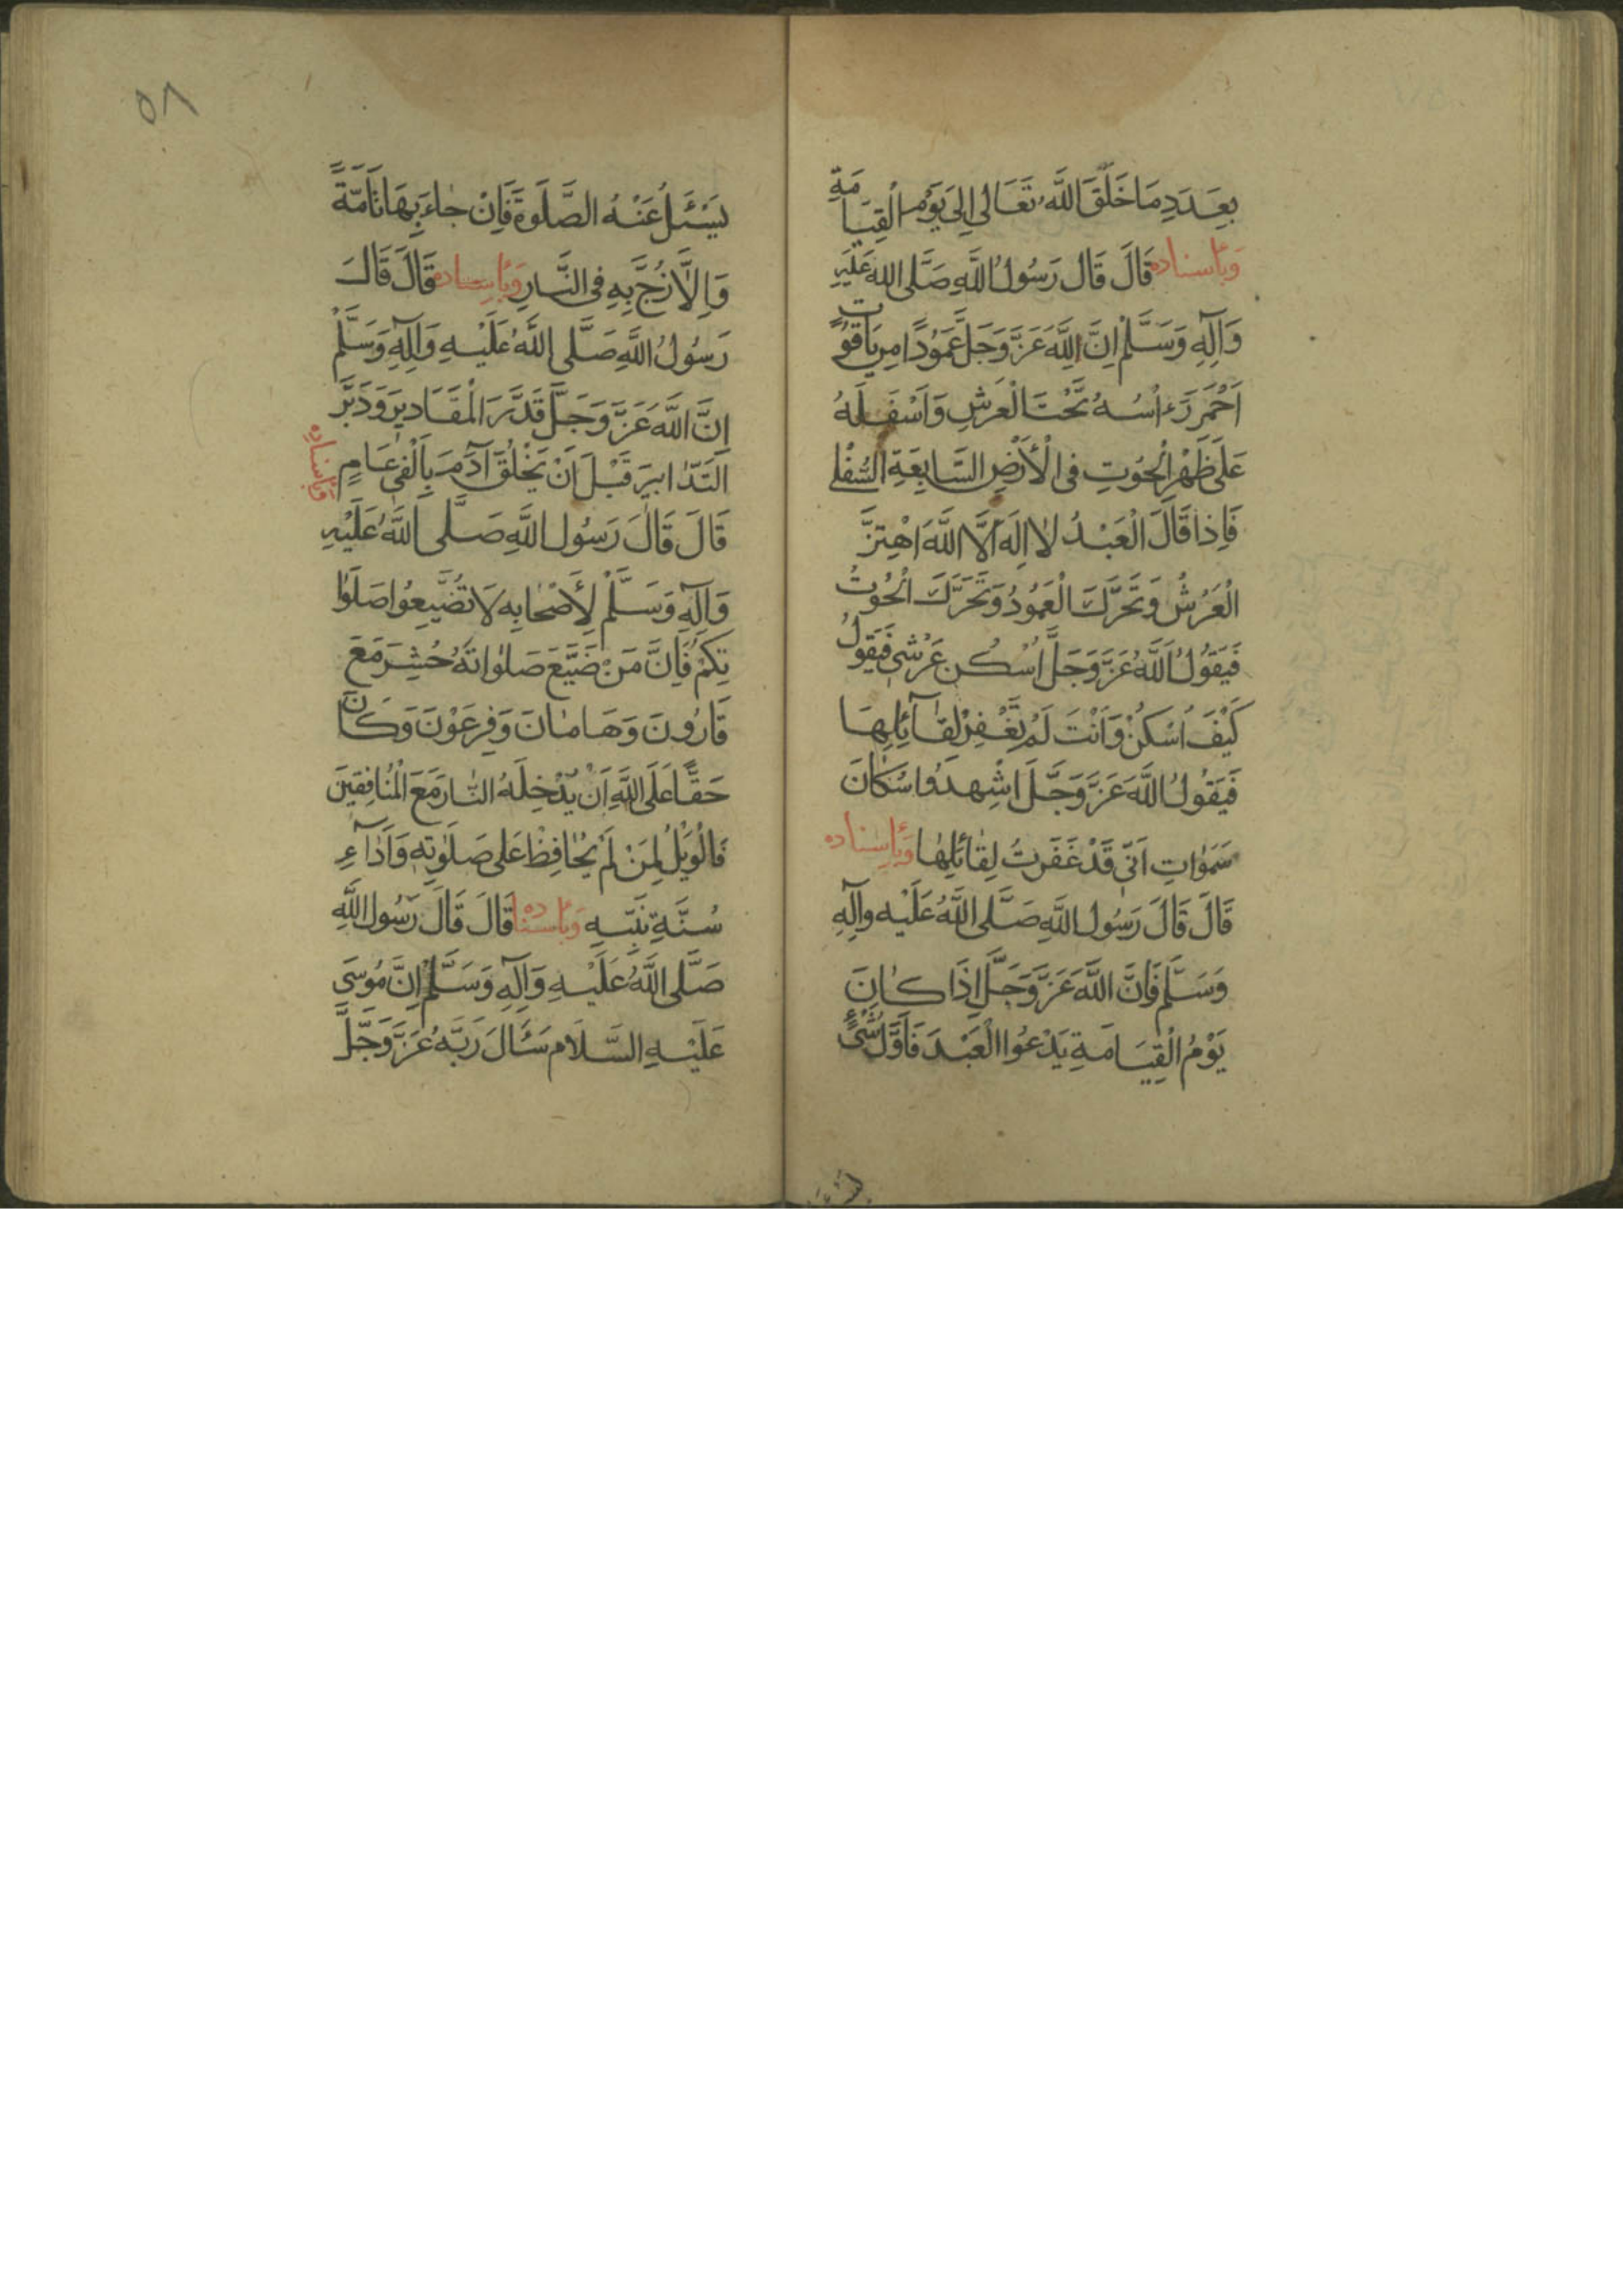 بِعَدَدِ مَا خَلَقَ اللَّهُ تَعَالَى اِلىَ يَوْمِ الْقِيَامَةِ
وَبِأسناده قَالَ قَالَ رَسُولُ اللَّهِ صَلَّى اللهُ عَلَيْهِ
وَآلِهِ وَسَلَّمْ اِنَّ لِلَّهِ عَزَّ وَجَلَّ عَمُودًا مِن يَاقُوتٍ
اَحْمَرَ رَءاْسُهُ تَحْتَ الْعَرشِ وَاَسْفَلَهُ
عَلَى ظَهْرِ الْحُوتِ فى الْأَرْضِ السَّابِعَةِ السُّفْلى
فَاِذا قَالَ الْعَبْدُ لا اِلَهَ اَلَّا اللَّهَ اهْتِزَّ
الْعَرْشُ وَتَحَرَّكَ الْعَمُودُ وَتَحَرَّكَ الْحُوتُ
فَيَقُولُ اللَّهُ عَزَّ وَجَلَّ اُسْكُن عَرْشى فَيَقُولُ
كَيْفَ اُسْكُنْ وَاَنْتَ لَمْ تَغْفِرْ لِقٰآئِلِهَا
فَيَقُولُ اللَّهَ عَزَّ وَجَّلَ اشْهِدَوُا سُكّٰانَ
سَمَوٰاتِ اَنّى قَدْ غَفَرتُ لِقٰائِلِهٰا وَبِأسناده
قَالَ قَالَ رَسُول اللَّهِ صَلَّى اللَّهُ عَلَيْهِ وآلِهِ
وَسَلَّم فَاِنَّ اللَّهَ عَزَّ وَجَلَّ اِذَا كٰانَ
يَوْمُ الْقِيَامَةِ يَدْعُوا الْعَبْدَ فَاَوَّلُ شَىْءٍ
٥٨
يَسْئَلُ عَنْهُ الصَّلَوةَ فَاِنْ جٰاءَ بِهَا تَامَّةً
وَاِلَّا زُجَّ بِهِ فى النَّارِ وَبِأسناده قَالَ قَالَ
رَسُولُ اللَّهِ صَلَّى اللَّهُ عَلَيْهِ وَآلِهِ وَسَلَّمْ
اِنَّ اللَّهَ عَزَّ وَجَلَّ قَدَّرَ الْمَقَادِيرَ وَدَبَّرَ
التَدّابيرَ قَبْلَ اَنْ يَخْلُقَ آدَمَ بِاَلْفى عَامٍ وَبِأسناده
قَالَ قَالَ رَسُول اللَّهِ صَلَّى اللَّهُ عَلَيْهِ
وَآلِهِ وَسَلَّمْ لِأَصْحٰابِهِ لَا تُضَيِّعُوا صَلَوٰا
تِكُمْ فَاِنَّ مَنْ ضَيَّعَ صَلوٰاتَهُ حُشِرَ مَعَ
قَارُونَ وَهَامٰانَ وَفِرعَوْنَ وَكَانَ
حَقًّا عَلَى اللَّهِ اَنْ يُدْخِلَهُ النّٰارَ مَعَ الْمُنَافِقِينَ
فَالْوَيْلُ لِمَنْ لَمْ يُحٰافِظْ عَلى صَلَوٰتِهِ وَاَدٰاءِ
سُنَّةِ نَبِيِّهِ وَبِأسناده قَالَ قَالَ رَسُول اللَّهِ
صَلَّى اللَّهُ عَلَيْهِ وَآلِهِ وَسَلَّمْ اِنَّ مُوسَى
عَلَيْهِ السَّلَام سَئَالَ رَبَّهُ عَزَّ وَجَّلَ